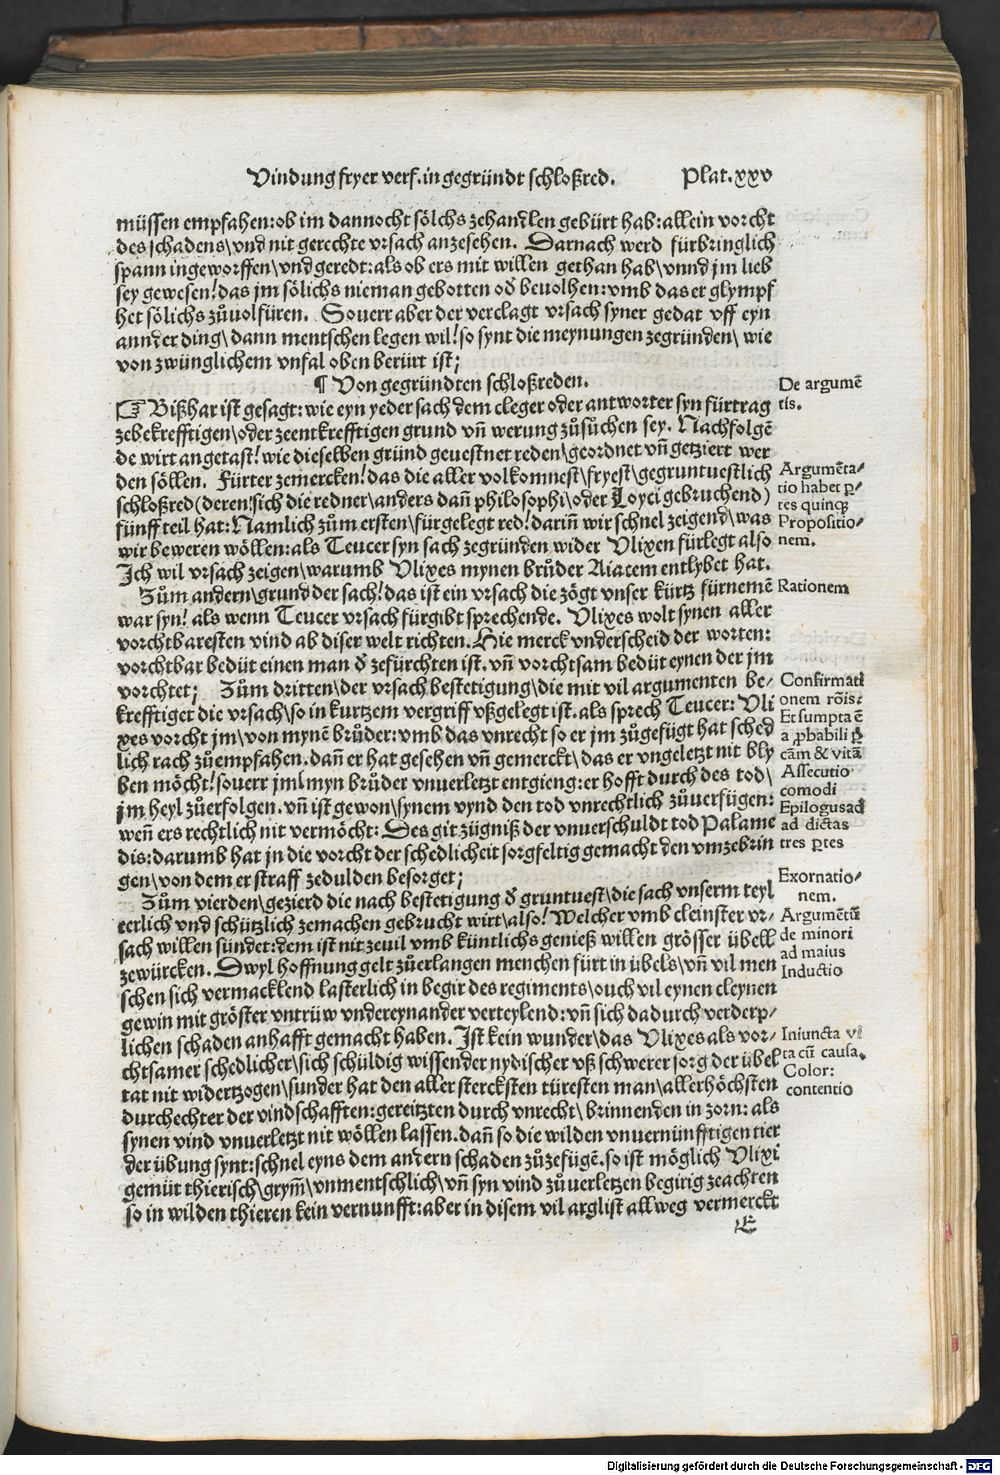 Vindung fryer verf. in gegründt schloßred. Plat. xxv
müssen empfahen: ob im dannocht sölchs zehandlen gebürt hab: allein vorcht
des schadens\ vnd nit gerechte vrsach anzesehen. Darnach werd fürbringlich
spann ingeworffen\ vnd geredt: als ob ers mit willen gethan hab\ vnnd jm lieb
sey gewesen! das jm sölichs nieman gebotten od̄ beuolhen: vmb das er glympf
het sölichs zůuolfüren. Souerr aber der verclagt vrsach syner gedat vff eyn
annder ding\ dann mentschen legen wil! so synt die meynungen zegründen\ wie
von zwünglichem vnfal oben berürt ist;
¶ Von gegründten schloßreden.
☞ Bißhar ist gesagt: wie eyn yeder sach dem cleger oder antworter syn fürtrag
zebekrefftigen\ oder zeentkrefftigen grund vn̄ werung zůsůchen sey. Nachfolgē
de wirt angetast! wie dieselben gründ geuestnet reden\ geordnet vn̄ getziert wer
den söllen. Fürter zemercken! das die aller volkomnest\ fryest\ gegruntuestlich
schloßred (deren sich die redner\ anders dan̄ philosophi\ oder Loyci gebruchend)
fünff teil hat: Namlich zům ersten\ fürgelegt red! darin̄ wir schnel zeigend\ was
wir beweren wöllen: als Teucer syn sach zegründen wider Vlixen fürlegt also
Ich wil vrsach zeigen\ warumb Vlixes mynen brůder Aiacem entlybet hat.
Zům andern\ grund der sach! das ist ein vrsach die zögt vnser kürtz fürnemē
war syn! als wenn Teucer vrsach fürgibt sprechende. Vlixes wolt synen aller
vorchtbaresten vind ab diser welt richten. Hie merck vnderscheid der worten:
vorchtbar bedüt einen man d̄ zefürchten ist. vn̄ vorchtsam bedüt eynen der jm
vorchtet; Zům dritten\ der vrsach bestetigung\ die mit vil argumenten be-
krefftiget die vrsach\ so in kurtzem vergriff vßgelegt ist. als sprech Teucer: Vli
xes vorcht jm\ von mynē brůder: vmb das vnrecht so er jm zůgefügt hat sched
lich rach zůempfahen. dan̄ er hat gesehen vn̄ gemerckt\ das er vngeletzt nit bly
ben möcht! souerr jm myn brůder vnuerletzt entgieng: er hofft durch des tod\
jm heyl zůerfolgen. vn̄ ist gewon\ synem vynd den tod vnrechtlich zůuerfügen:
wen̄ ers rechtlich nit vermöcht: Des git zügniß der vnuerschuldt tod Palame
dis: darumb hat jn die vorcht der schedlicheit sorgfeltig gemacht den vmzebrin
gen\ von dem er straff zedulden besorget;
Zům vierden\ gezierd die nach bestetigung d̄ gruntuest\ die sach vnserm teyl
eerlich vnd schützlich zemachen gebrucht wirt\ also! Welcher vmb cleinster vr-
sach willen sündet: dem ist nit zeuil vmb küntlichs genieß willen grösser übell
zewürcken. Dwyl hoffnung gelt zůerlangen menchen fürt in übels\ vn̄ vil men
schen sich vermacklend lasterlich in begir des regiments\ ouch vil eynen cleynen
gewin mit gröster vntrüw vndereynander verteylend: vn̄ sich dadurch verderp-
lichen schaden anhafft gemacht haben. Ist kein wunder\ das Vlixes als vor-
chtsamer schedlicher\ sich schüldig wissender nydischer vß schwerer sorg der übel
tat nit widertzogen\ sunder hat den aller stercksten türesten man\ allerhöchsten
durchechter der vindschafften: gereitzten durch vnrecht\ brinnenden in zorn: als
synen vind vnuerletzt nit wöllen lassen. dan̄ so die wilden vnuernünfftigen tier
der übung synt: schnel eyns dem andern schaden zůzefügē. so ist möglich Vlixi
gemüt thierisch\ grym̄\ vnmentschlich\ vn̄ syn vind zůuerletzen begirig zeachten
so in wilden thieren kein vernunfft: aber in disem vil arglist allweg vermerckt
E
De argumē
tis.
Argumēta-
tio habet ꝑ-
tes quinq̢
Propositio-
nem.
Rationem
Confirmati
onem rōis.
Et sumpta ē
a ꝓbabili ꝑ
cām & vitā
Assecutio
comodi
Epilogus ad
ad dictas
tres ꝑtes
Exornatio-
nem.
Argumētū
de minori
ad maius
Inductio
Iniuncta vi
ta cū causa.
Color:
contentio
Digitalisierung gefördert durch die Deutsche Forschungsgemeinschaft - DFG